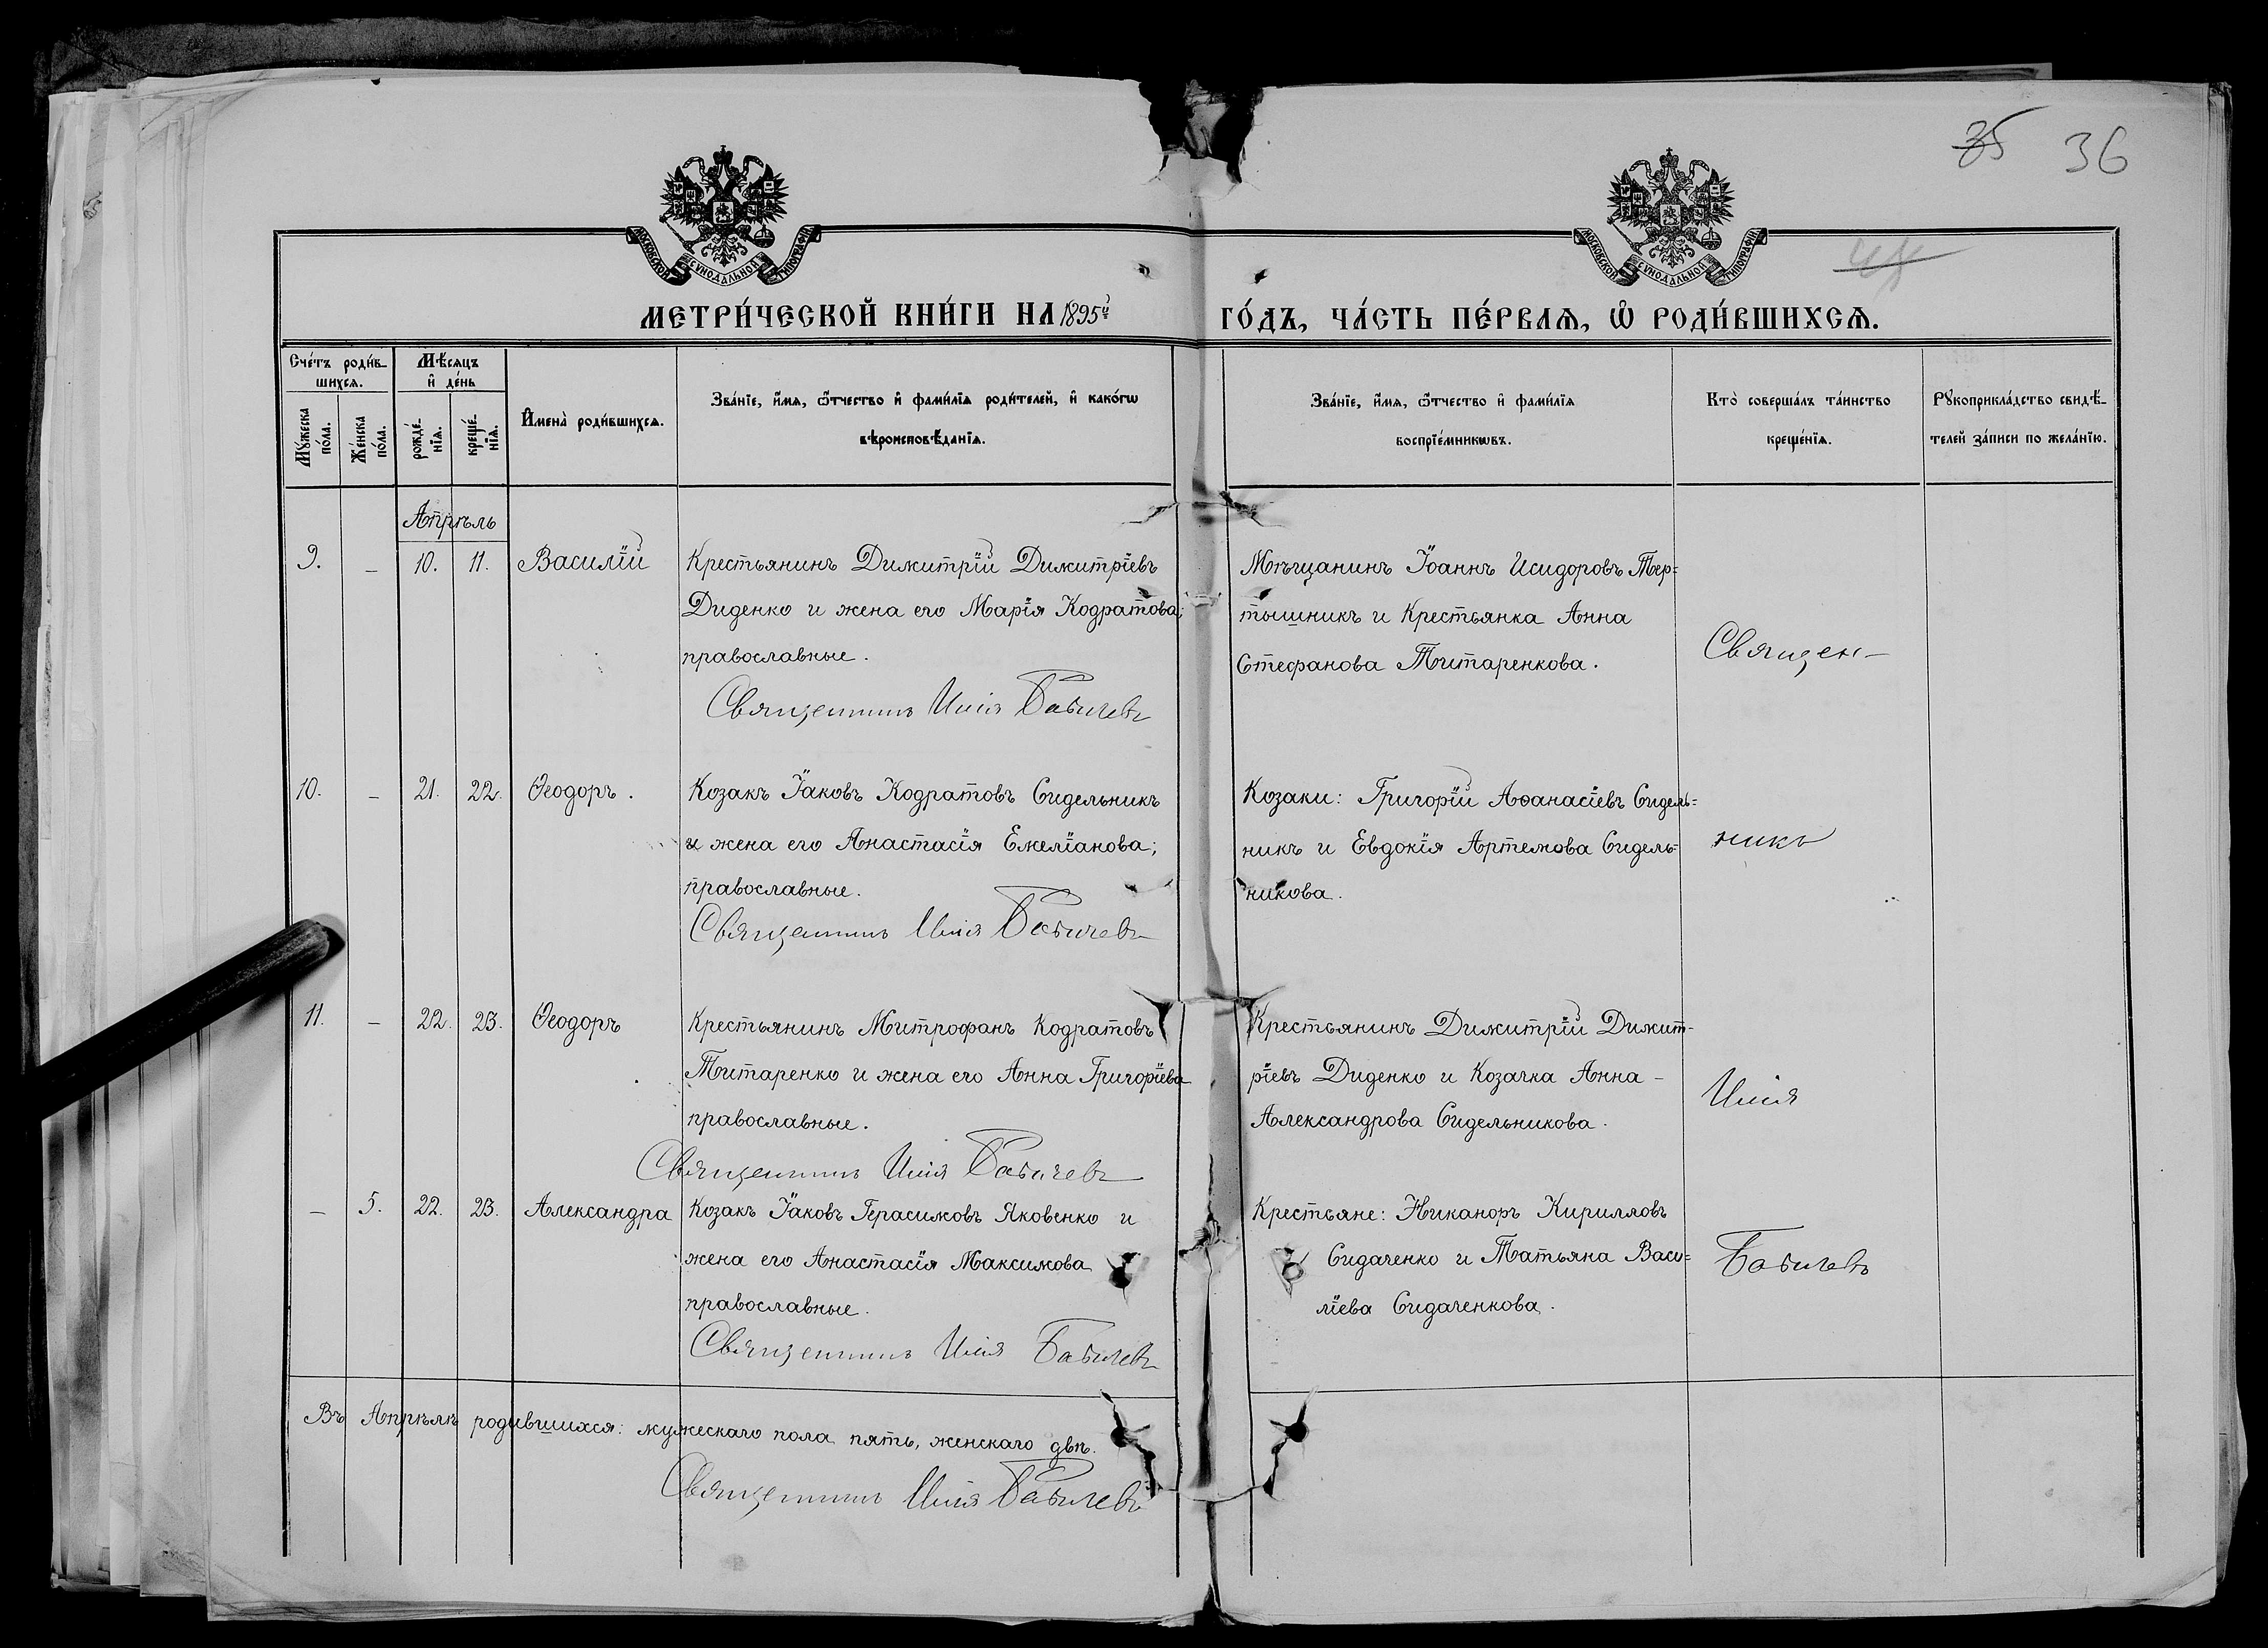 35 36
МОСКОВСКОЙ СУНОДАЛЬНОЙ ТИПОГРАФІИ
МОСКОВСКОЙ СУНОДАЛЬНОЙ ТИПОГРАФІИ
МЕТРИ́ЧЕСКОЙ КНИ́ГИ НА 1895й ГО́ДЪ, ЧА́СТЬ ПЕ́РВАѦ, Ѡ҆ РОДИ́ВШИХСѦ.
Сче́тъ роди́в-
шихсѧ.
Мѣ́сѧцъ
и҆ де́нь
Мꙋ́жеска
по́ла.
Же́нска
по́ла.
рожде́-
нїѧ.
креще́-
нїѧ.
И҆мена̀ роди́вшихсѧ.
Зва́нїе, и҆́мѧ, ѻ҆́тчество и҆ фами́лїѧ роди́телей, и҆ како́гѡ
вѣроисповѣ́данїѧ.
Зва́нїе, и҆́мѧ, ѻ҆́тчество и҆ фами́лїѧ
воспрїе́мникѡвъ.
Кто̀ соверша́лъ та́инство
креще́нїѧ.
Рꙋкоприкла́дство свидѣ́-
телей за́писи по жела́нїю.
Апрѣль
9. – 10. 11. Василій
Крестьянинъ Димитрій Димитріевъ
Диденко и жена его Марія Кодратова;
православные.
Священникъ Илія Бабичевъ
Мѣщанинъ Іоаннъ Исидоровъ Тер=
тышникъ и Крестьянка Анна
Стефанова Титаренкова.
Священ-
10. – 21. 22. Ѳеодоръ.
Козакъ Іаковъ Кодратовъ Сидельникъ
и жена его Анастасія Емеліанова;
православные.
Священникъ Илія Бабичевъ
Козаки: Григорій Аѳанасіевъ Сидель=
никъ и Евдокія Артемова Сидель=
никова.
никъ
11. – 22. 23. Ѳеодоръ
Крестьянинъ Митрофанъ Кодратовъ
Титаренко и жена его Анна Григоріева
православные.
Священникъ Илія Бабичевъ
Крестьянинъ Димитрій Димит-
ріевъ Диденко и Козачка Анна –
Александрова Сидельникова.
Илія
– 5. 22. 23. Александра
Козакъ Іаковъ Герасимовъ Яковенко и
жена его Анастасія Максимова
православные.
Священникъ Илія Бабичевъ
Крестьяне: Никаноръ Кирилловъ
Сидаченко и Татьяна Васи=
ліева Сидаченкова.
Бабичевъ
Въ Апрѣлѣ родившихся: мужескаго пола пять, женскаго двѣ.
Священникъ Илія Бабичевъ